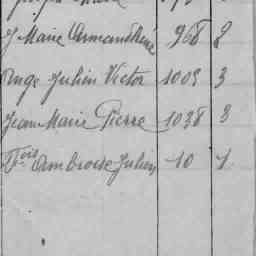 J Marie Armand René 968 2
Ange Julien Victor 1003 3
Jean Marie Pierre 1038 3
Fçois Ambroise Julien 10 1